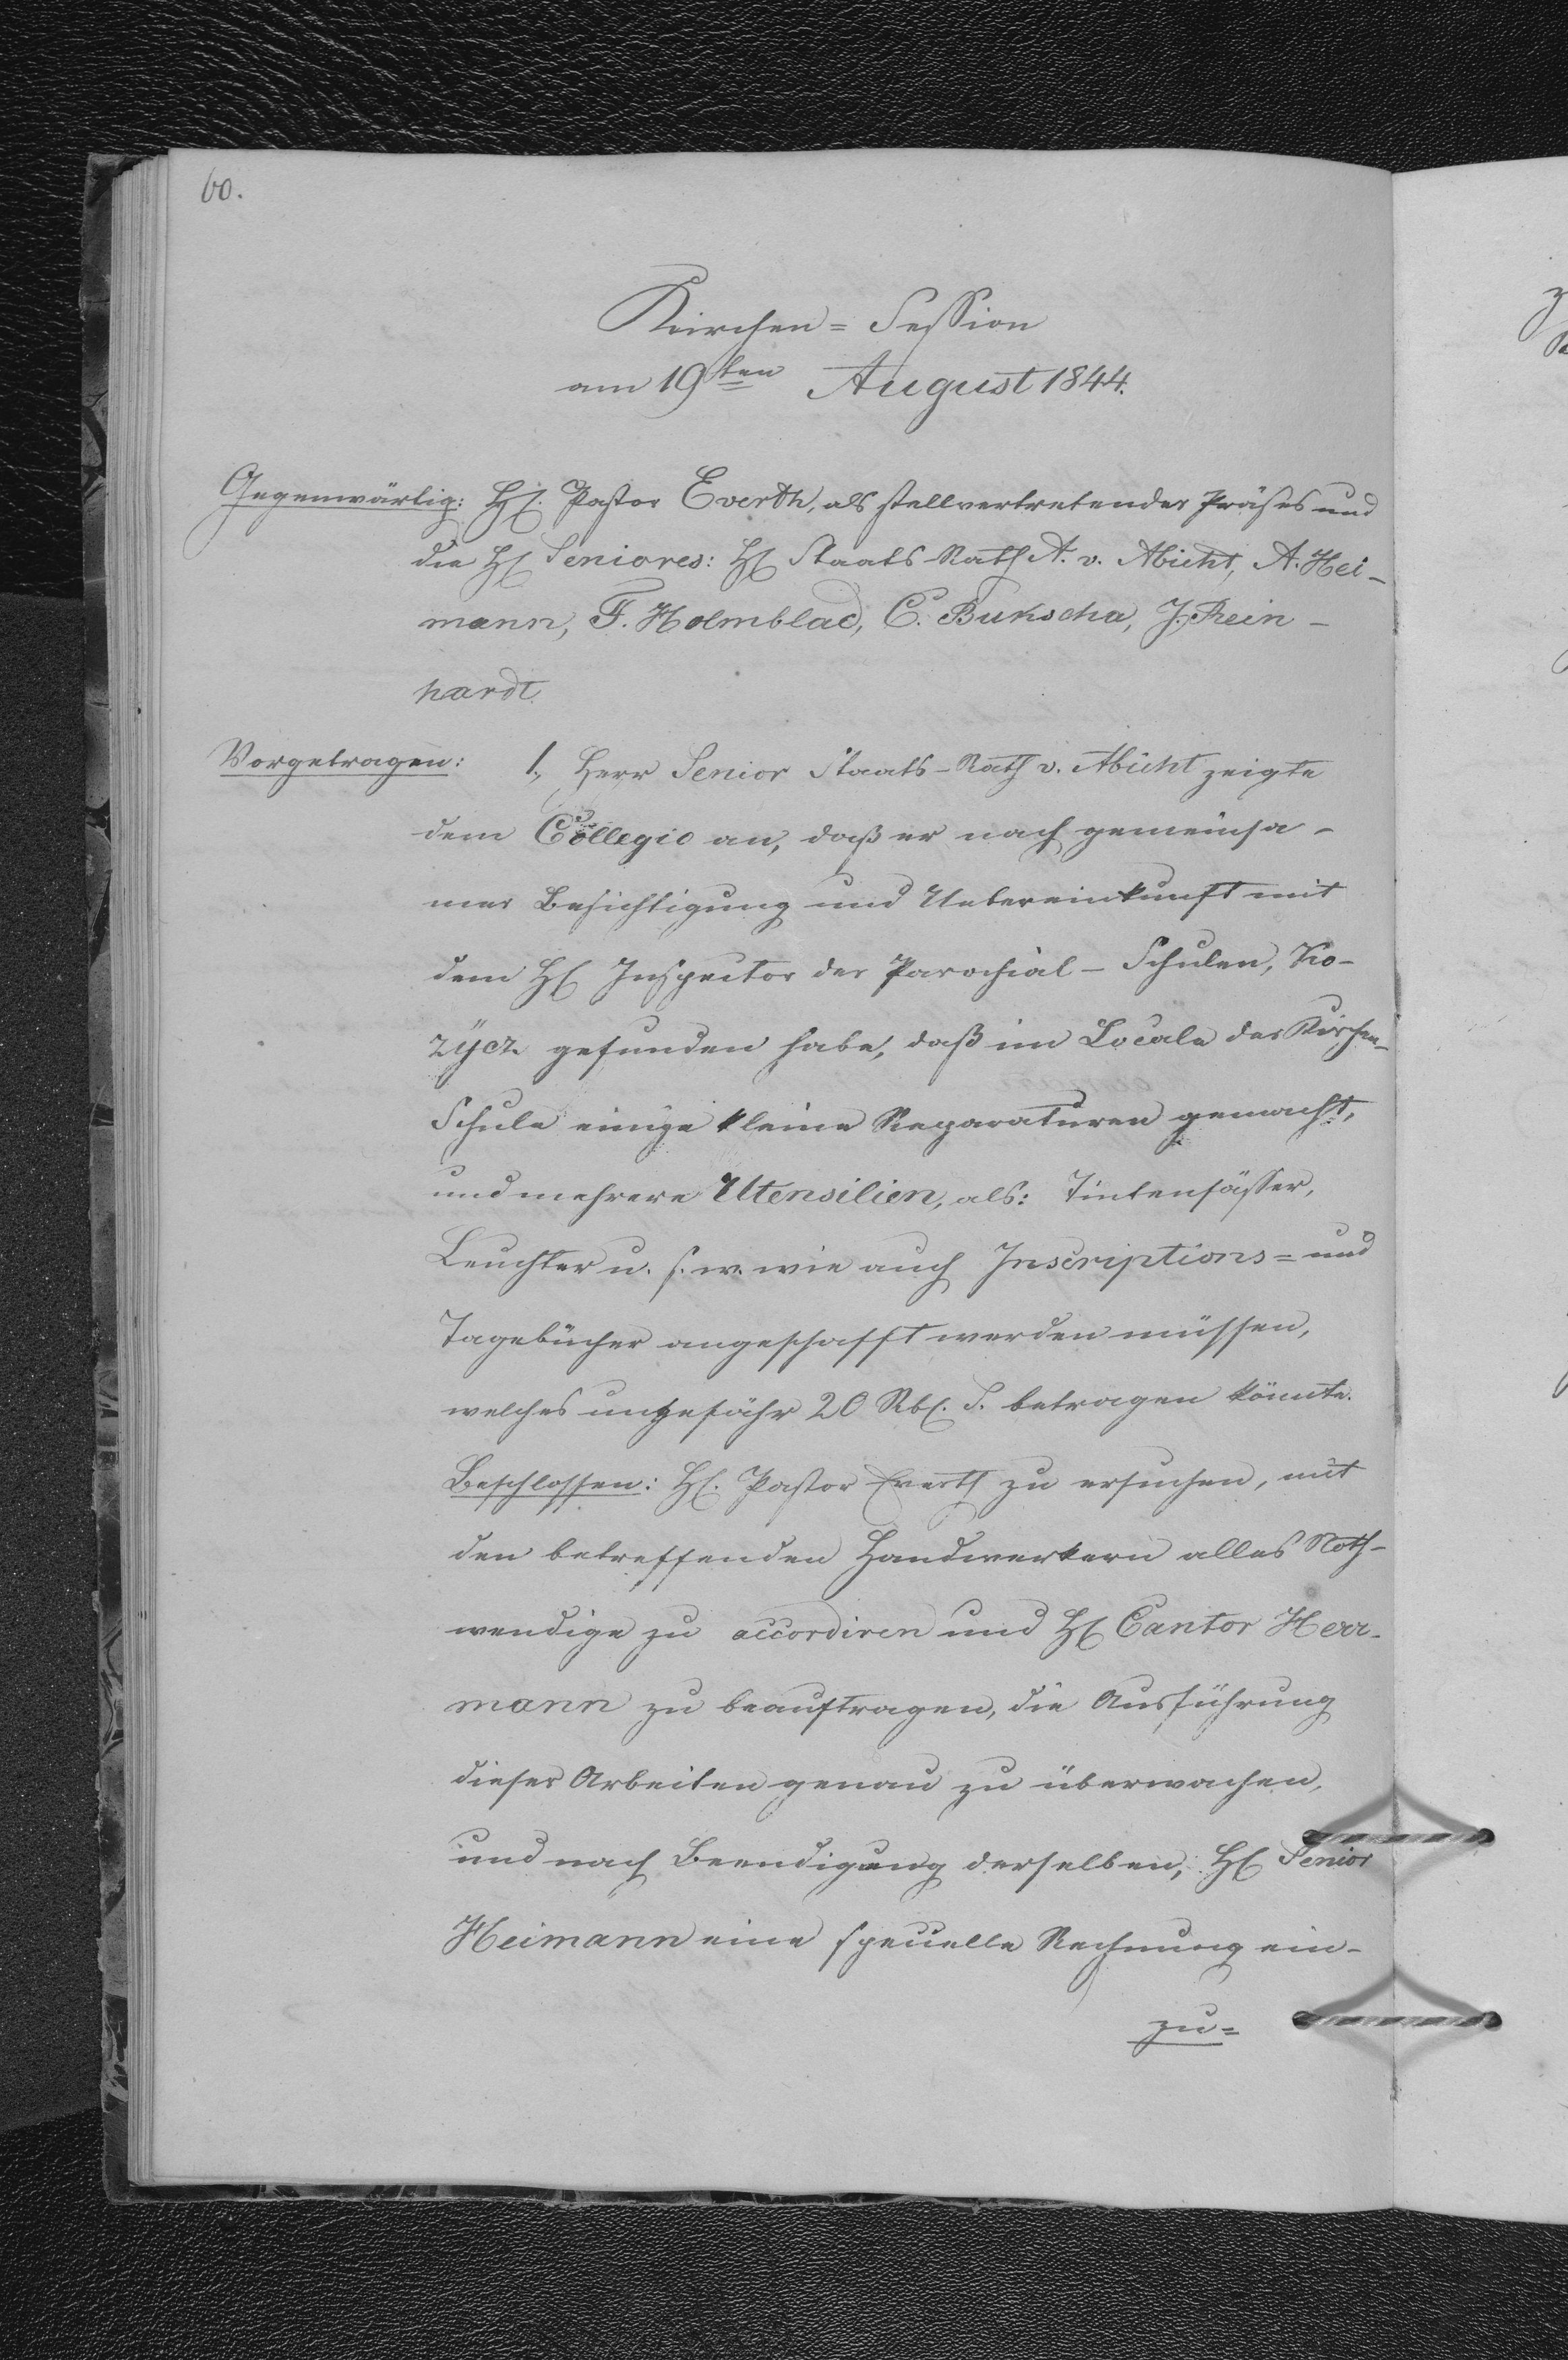 60.
Kirchen=Session
am 19ten August 1844.
Gegenwärtig: H. Pastor Everth, als stellvertretender Präses und
die H. Seniores: H. Staats-Rath A. v. Abicht, A. Hei-
mann, F. Holmblad, C. Bukscha, J. Rein-
hardt.
Vorgetragen: 1., Herr Senior Staats-Rath v. Abicht zeigte
dem Collegio an, daß er nach gemeinsa-
mer Besichtigung und Uebereinkunft mit
dem H. Inspector der Parochial-Schulen, Ko-
zÿcz gefunden habe, daß im Locale der Kirchen-
Schule einige kleine Reparaturen gemacht,
und mehrere Utensilien, als: Tintenfässer,
Leuchter u. s. w. wie auch Inscriptions= und
Tagebücher angeschafft werden müssen,
welches ungefähr 20 Rbl. S. betragen könnte.
Beschlossen: H. Pastor Everth zu ersuchen, mit
den betreffenden Handwerkern alles Noth-
wendige zu accordiren und H. Cantor Herr-
mann zu beauftragen, die Ausführung
dieser Arbeiten genau zu überwachen,
und nach Beendigung derselben, H. Senior
Heimann eine specielle Rechnung ein-
zu=